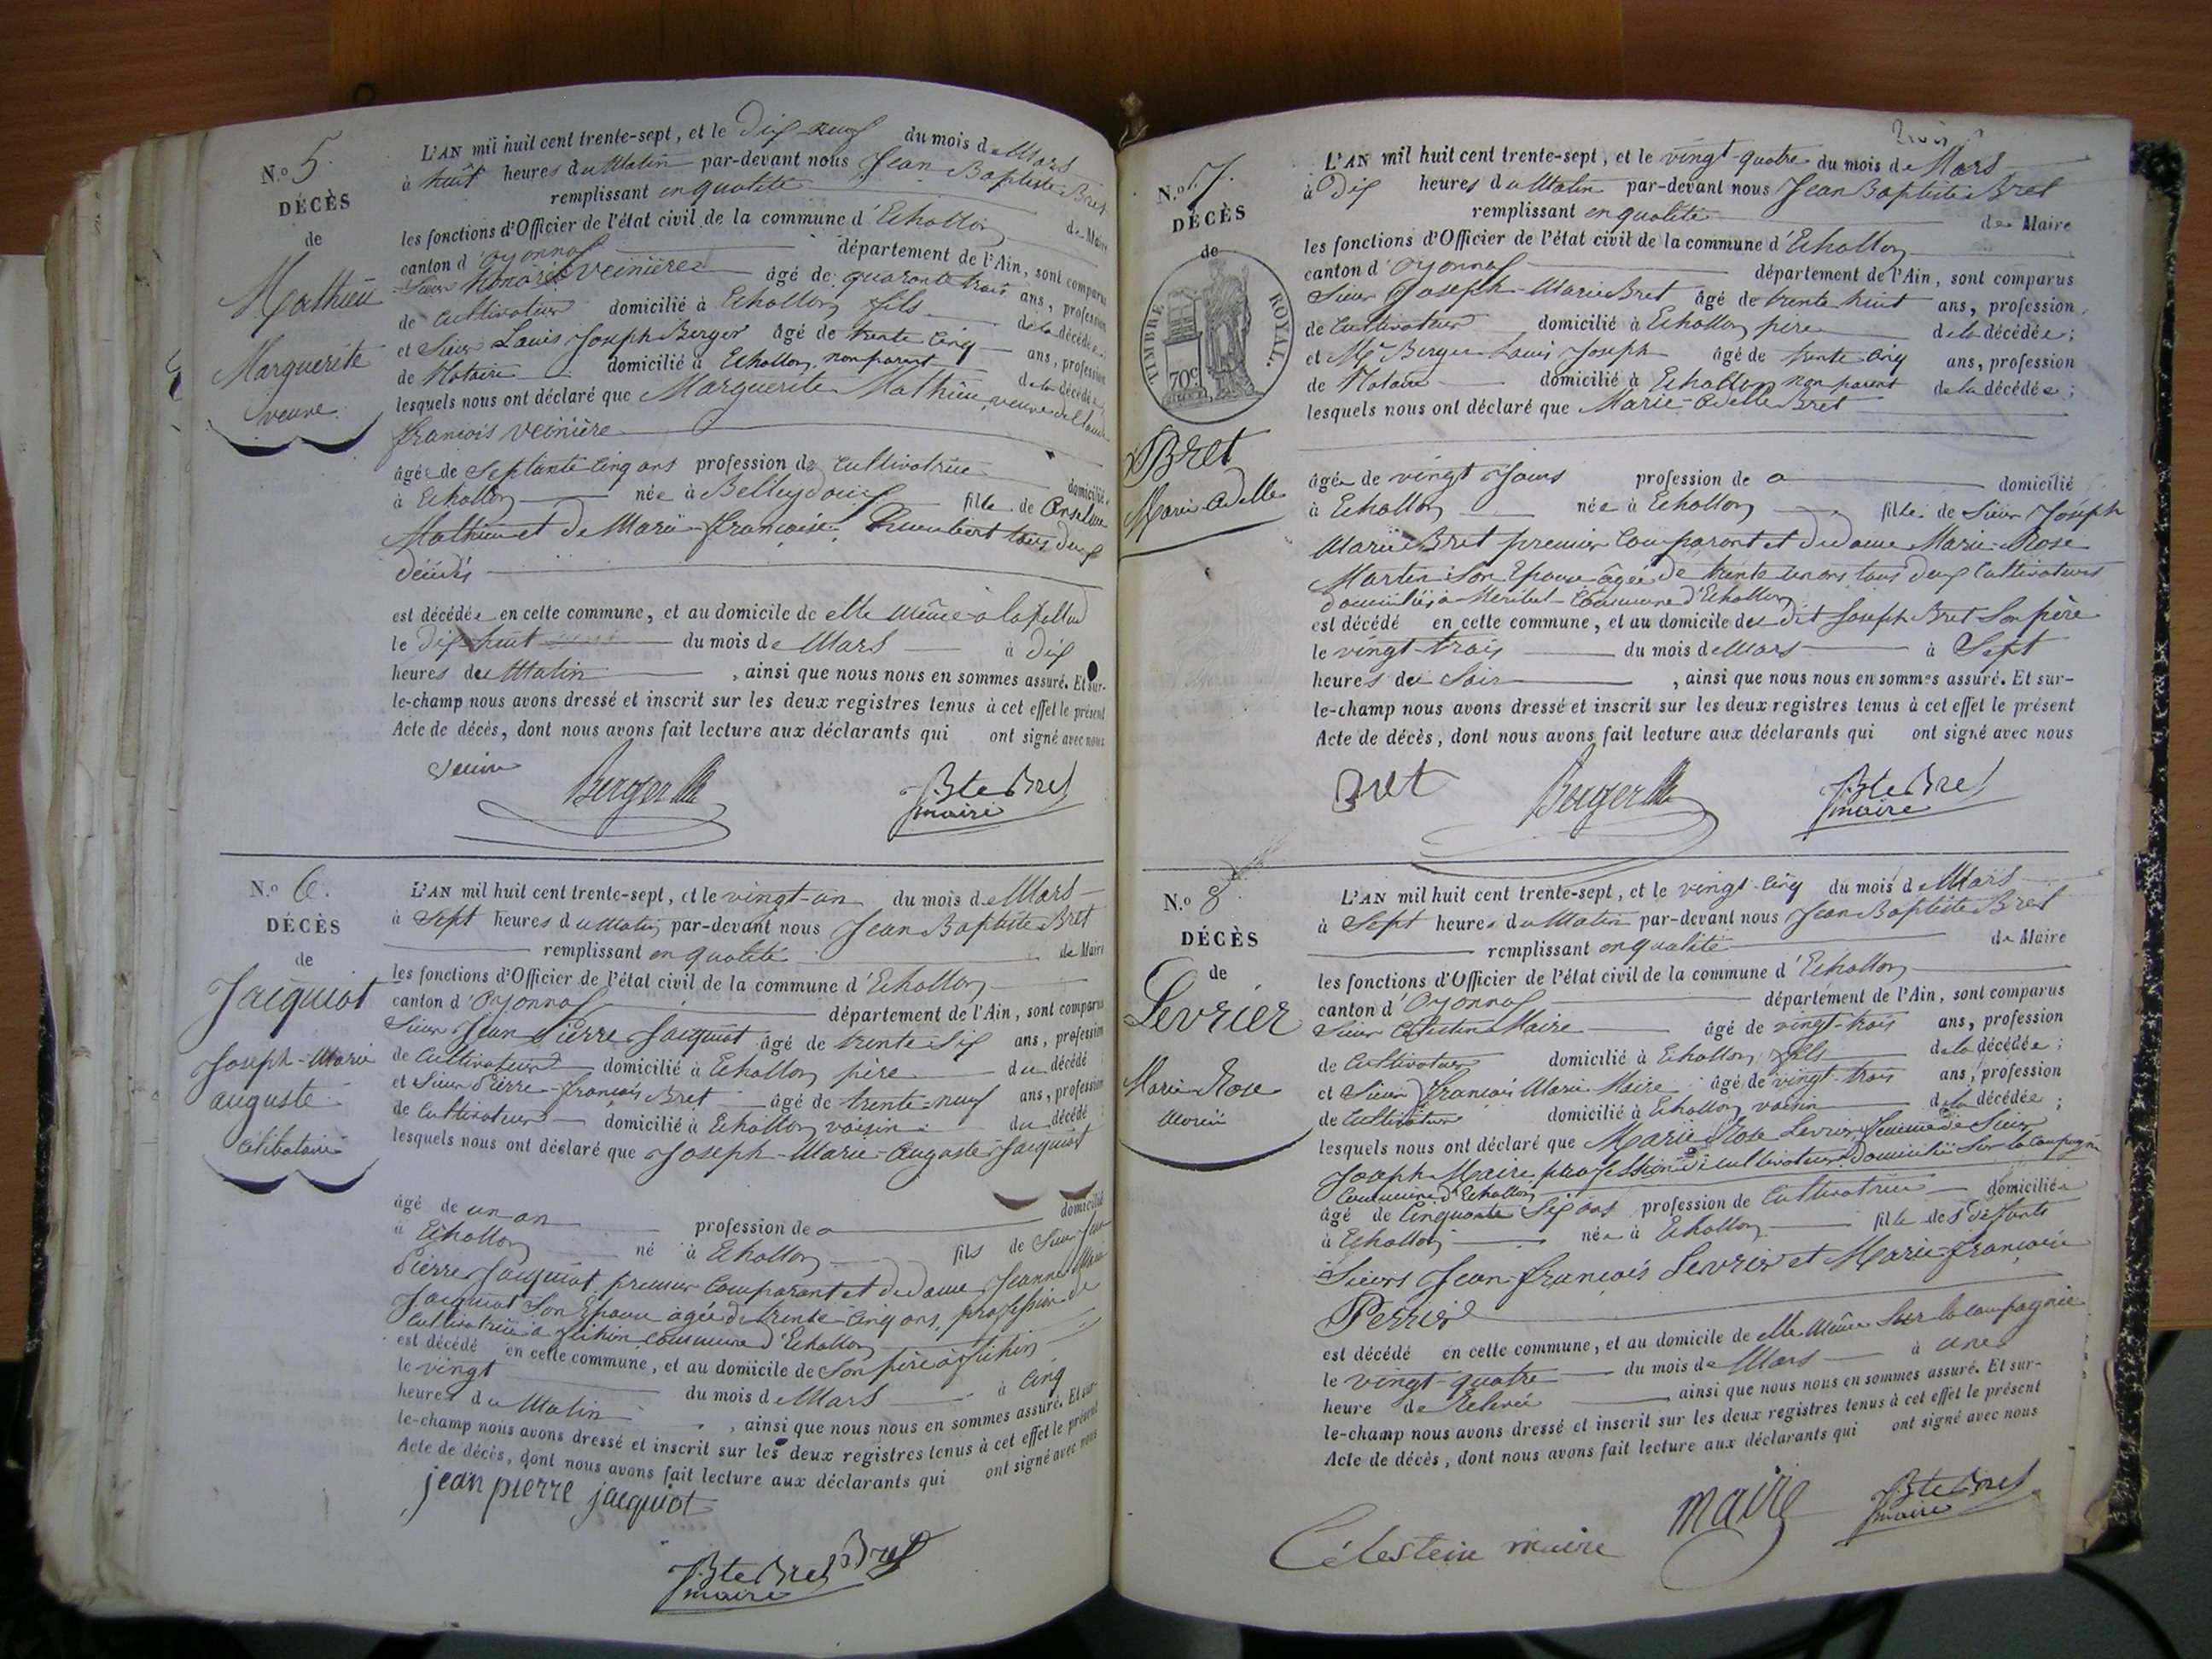 N.o 5.
DÉCÈS
de
Mathieu
Marguerite
veuve
L'AN mil huit cent trente-sept, et le Dix neuf du mois de Mars
à huit heures du Matin par-devant nous Jean Baptiste Bret
remplissant en qualité de Maire
les fonctions d'Officier de l'état civil de la commune d'Echallon
canton d'Oyonnax département de l'Ain, sont comparus
Sieur Honoré Veinière âgé de quarante trois ans, profession
de Cultivateur domicilié à Echallon fils de la décédée
et Sieur Louis Joseph Berger âgé de trente cinq ans, profession
de Notaire domicilié à Echallon, non parent de la décédée
lesquels nous ont déclaré que Marguerite Mathieu, veuve de
françois Veinière
âgée de Septante cinq ans profession de Cultivatrice domiciliée
à Echallon née à Belleydoux fille de Anselme
Mathieu et de Marie françoise Humbert tous deux
décédés
est décédée en cette commune, et au domicile de elle même
le Dix huit du mois de Mars à dix
heures du Matin, ainsi que nous nous en sommes assuré. Et sur-
le-champ nous avons dressé et inscrit sur les deux registres tenus à cet effet le présent
Acte de décès, dont nous avons fait lecture aux déclarants qui ont signé avec nous
Berger
JBte Bret
maire
N.o 6.
DÉCÈS
de
Jacquiot
Joseph-Marie
auguste
Célibataire
L'AN mil huit cent trente-sept, et le vingt-un du mois de Mars
à Sept heures du Matin par-devant nous Jean Baptiste Bret
remplissant en qualité de Maire
les fonctions d'Officier de l'état civil de la commune d'Echallon
canton d'Oyonnax département de l'Ain, sont comparus
Sieur Jean Pierre Jacquiot âgé de trente Six ans, profession
de Cultivateur domicilié à Echallon père du décédé
et Sieur Pierre-françois Bret âgé de trente-neuf ans, profession
de Cultivateur domicilié à Echallon voisin du décédé
lesquels nous ont déclaré que Joseph-Marie-Auguste Jacquiot
âgé de un an profession de domicilié
à Echallon né à Echallon fils de Sieur Jean
Pierre Jacquiot premier Comparant et de dame Jeanne Marie
Jacquiot Son Epouse agée de trente-cinq ans, profession de
Cultivatrice à commune d'Echallon
est décédé en cette commune, et au domicile de Son père
le vingt du mois de Mars à Cinq
heures du Matin, ainsi que nous nous en sommes assuré. Et sur-
le-champ nous avons dressé et inscrit sur les deux registres tenus à cet effet le présent
Acte de décès, dont nous avons fait lecture aux déclarants qui ont signé avec nous
jean pierre jacquiot
JBte Bret Bret
maire
N.o 7.
DÉCÈS
de
TIMBRE ROYAL.
70c
Bret
Marie-Adelle
L'AN mil huit cent trente-sept, et le vingt-quatre du mois de Mars
à Dix heures du Matin par-devant nous Jean Baptiste Bret
remplissant en qualité de Maire
les fonctions d'Officier de l'état civil de la commune d'Echallon
canton d'Oyonnax département de l'Ain, sont comparus
Sieur Joseph-Marie Bret âgé de trente huit ans, profession
de Cultivateur domicilié à Echallon père de la décédée;
et Me Berger Louis Joseph âgé de trente cinq ans, profession
de Notaire domicilié à Echallon non parent de la décédée;
lesquels nous ont déclaré que Marie-Adelle Bret
âgée de vingt Jours profession de domicilié
à Echallon née à Echallon fille de Sieur Joseph
Marie Bret premier Comparant et de dame Marie-Rose
Martin Son Epouse âgée de trente un ans tous deux Cultivateurs
domiciliés à Meribel Commune d'Echallon
est décédé en cette commune, et au domicile du dit Joseph Bret Son père
le vingt-trois du mois de Mars à Sept
heures du Soir, ainsi que nous nous en sommes assuré. Et sur-
le-champ nous avons dressé et inscrit sur les deux registres tenus à cet effet le présent
Acte de décès, dont nous avons fait lecture aux déclarants qui ont signé avec nous
Bret
Berger
JBte Bret
maire
N.o 8
DÉCÈS
de
Levrier
Marie Rose
L'AN mil huit cent trente-sept, et le vingt-cinq du mois de Mars
à Sept heures du Matin par-devant nous Jean Baptiste Bret
remplissant en qualité de Maire
les fonctions d'Officier de l'état civil de la commune d'Echallon
canton d'Oyonnax département de l'Ain, sont comparus
Sieur Célestin Maire âgé de vingt-trois ans, profession
de Cultivateur domicilié à Echallon fils de la décédée;
et Sieur François Marie Maire âgé de vingt-trois ans, profession
de Cultivateur domicilié à Echallon voisin de la décédée;
lesquels nous ont déclaré que Marie Rose Levrier femme de Sieur
Joseph Maire profession de cultivateur domicilié Sur la Campagne
Commune d'Echallon
âgé de Cinquante Six ans profession de Cultivatrice domiciliée
à Echallon née à Echallon fille des défunts
Sieurs Jean-françois Levrier et Marie-françoise
Perrier
est décédé en cette commune, et au domicile de elle même Sur la campagne
le vingt-quatre du mois de Mars à une
heure de Relevée ainsi que nous nous en sommes assuré. Et sur-
le-champ nous avons dressé et inscrit sur les deux registres tenus à cet effet le présent
Acte de décès, dont nous avons fait lecture aux déclarants qui ont signé avec nous
Célestin maire
maire
JBte Bret
maire